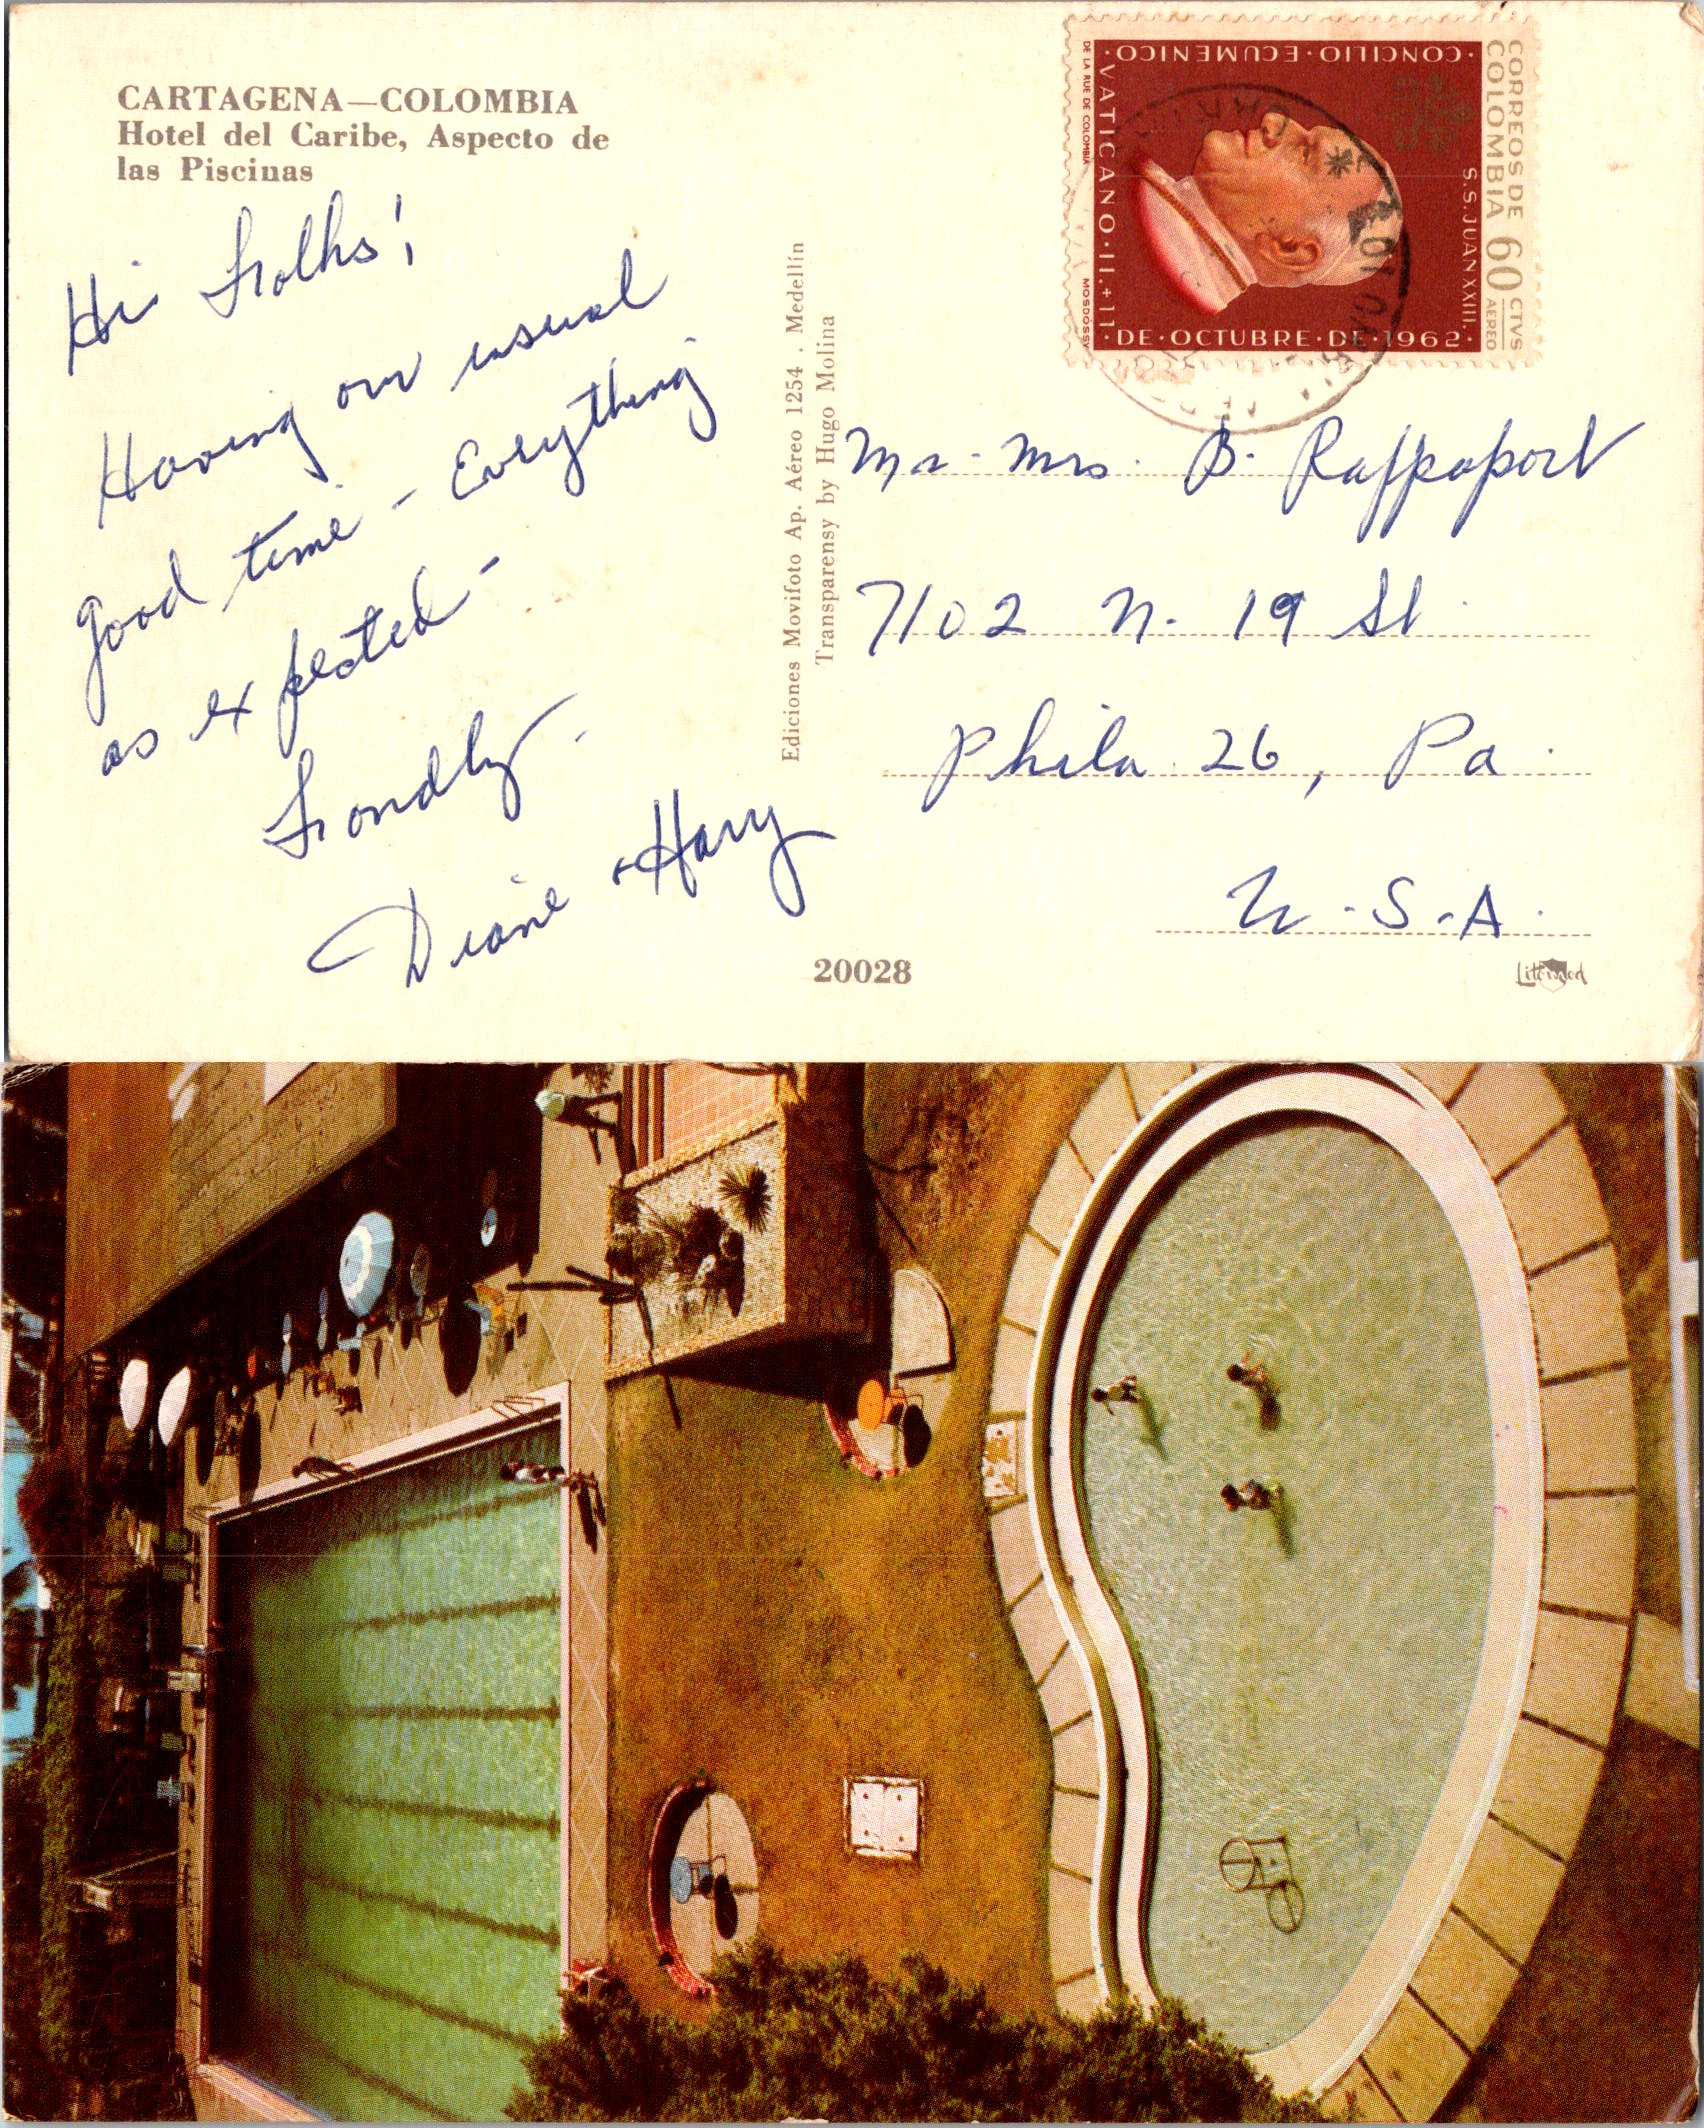 CARTAGENA—COLOMBIA
Hotel del Caribe, Aspecto de
las Piscinas
Hi Folks!
Having our usual
good time - Everything
as expected -
Fondly.
Diane + Harry
Ediciones Movifoto Ap. Aéreo 1254 . Medellín
Transparensy by Hugo Molina
CORREOS DE
COLOMBIA 60 CTVS
AEREO
S.S. JUAN XXIII.
·CONCILIO·ECUMENICO·
VATICANO·II·+11
·DE·OCTUBRE·DE·1962·
DE LA RUE DE COLOMBIA
MOSDÓSSY
Mr. Mrs. B. Rappaport
7102 N. 19 St.
Phila 26, Pa.
U.S.A.
20028
Litomed